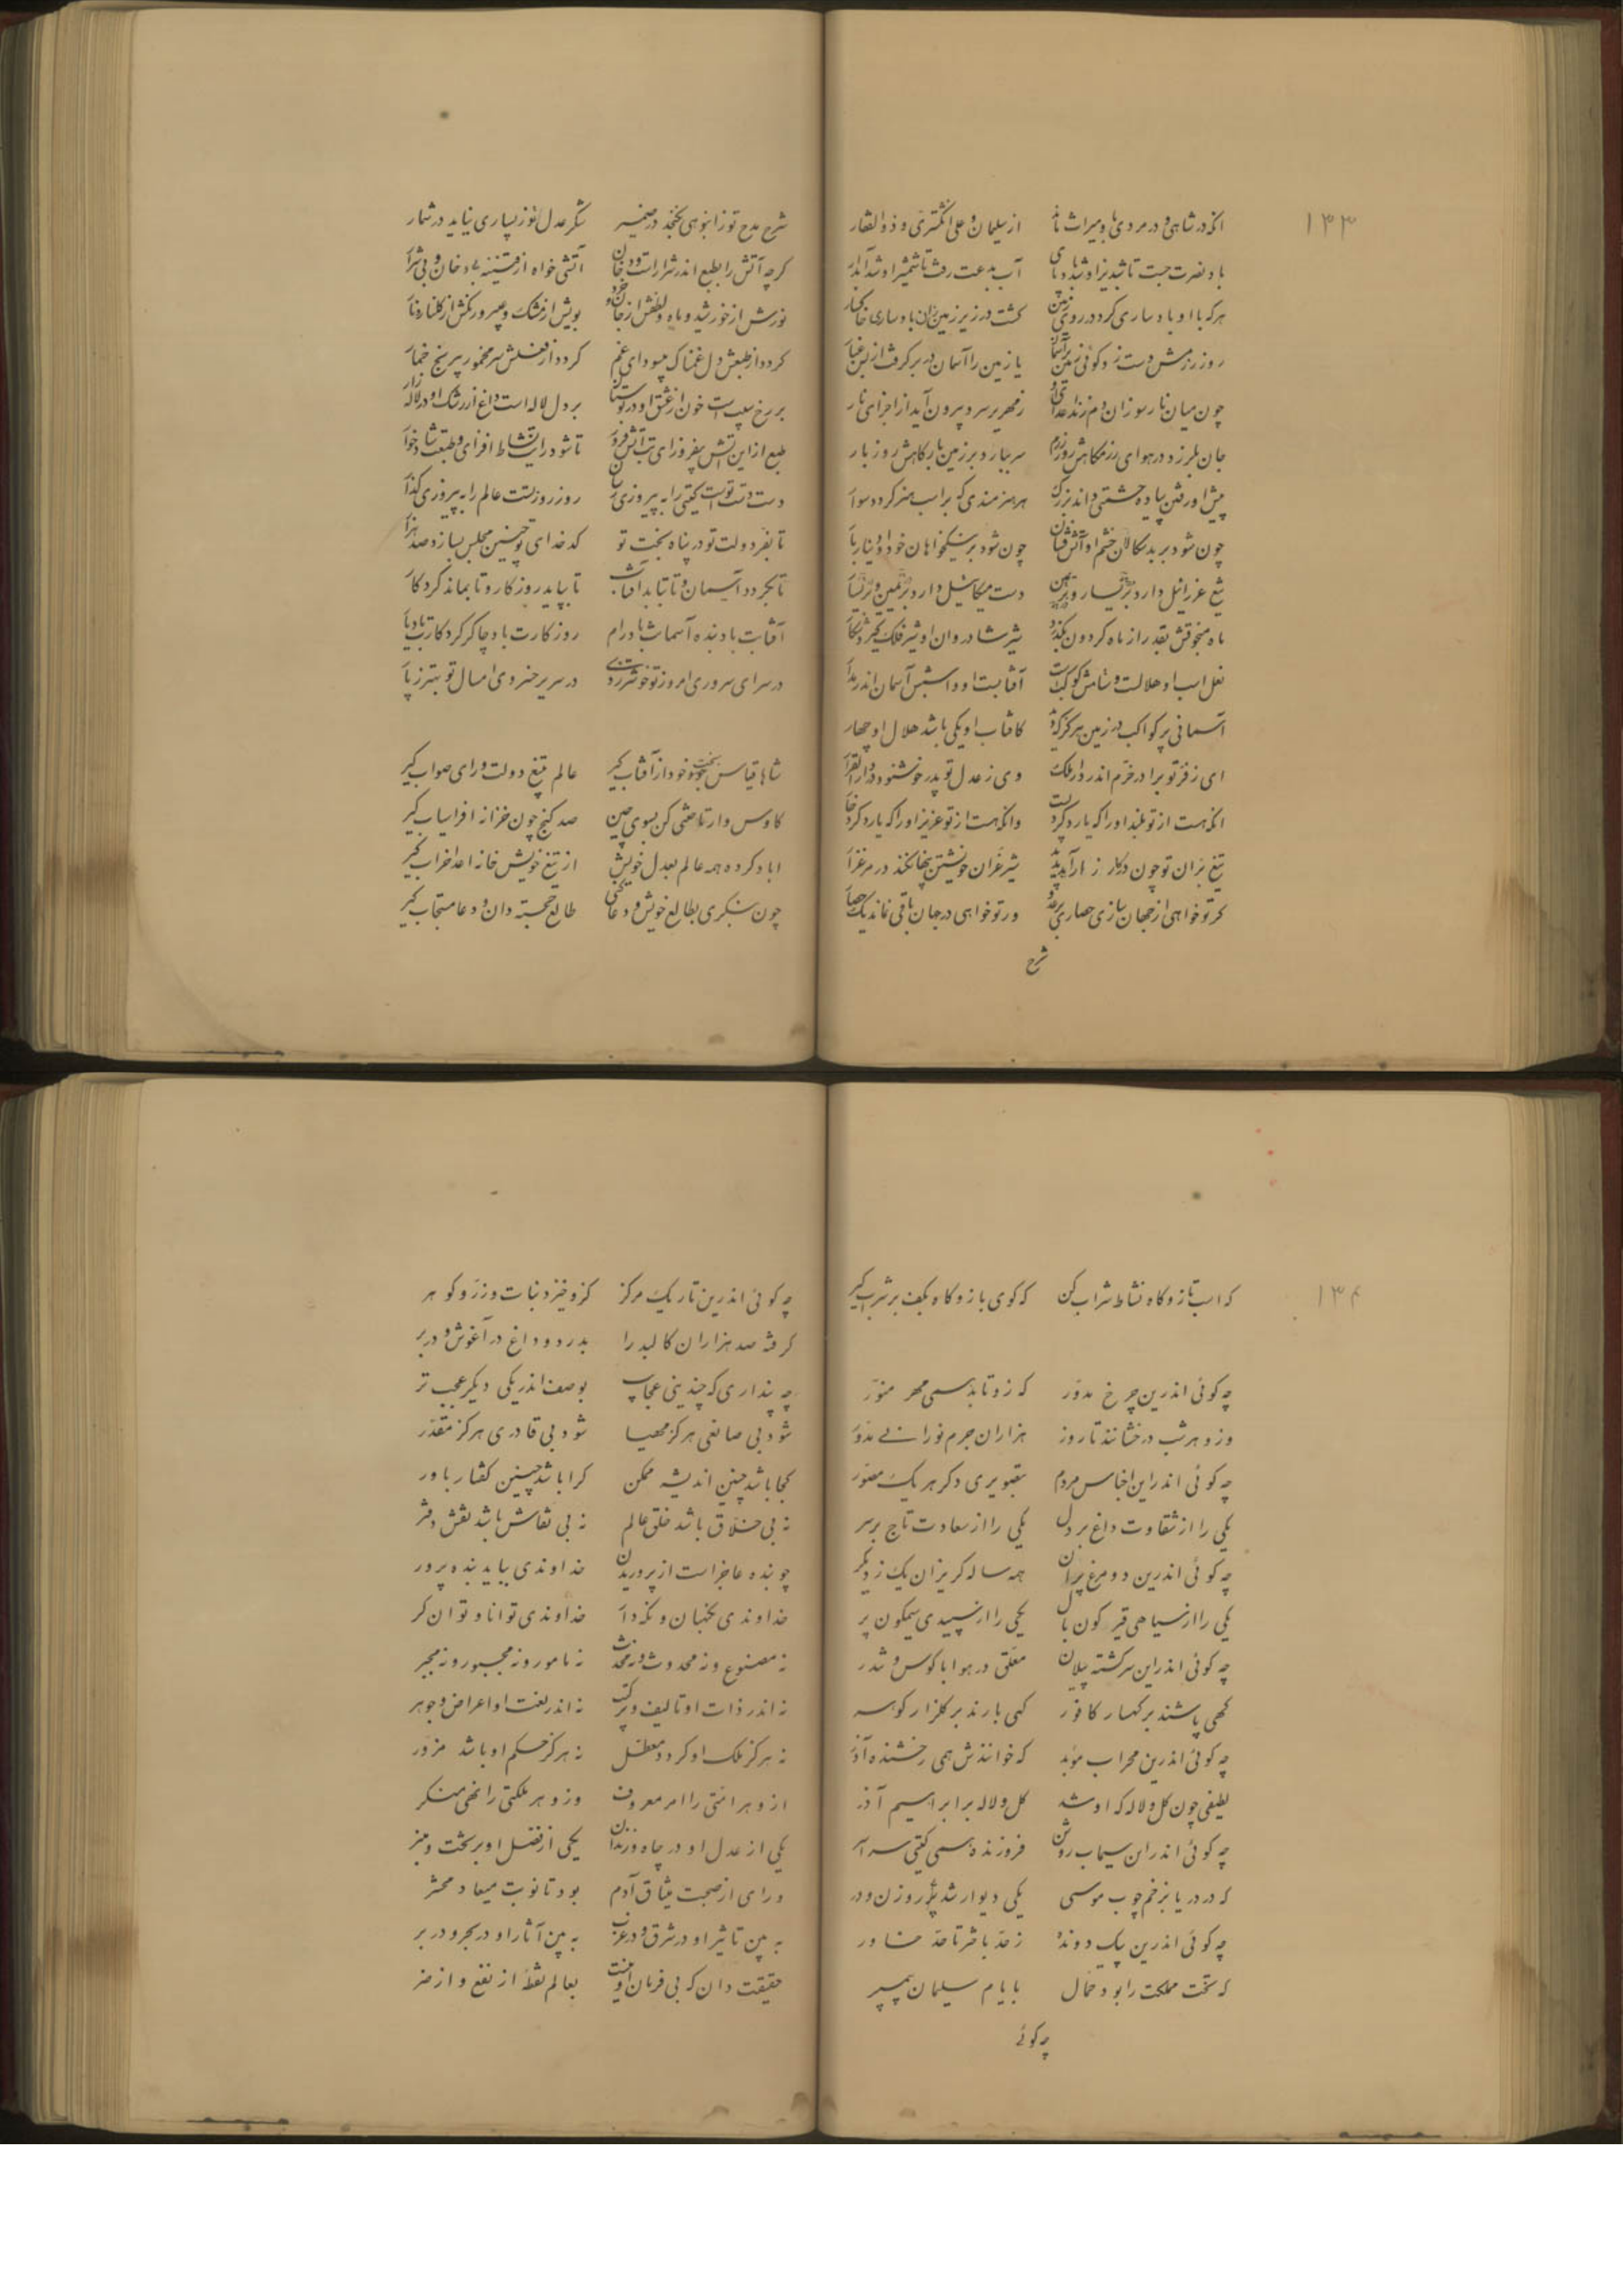 ۱۳۳
انکه در شاهی و در مردی باو میراث ماند از سلیمان و علی انکشتری و ذوالفقار
باد نصرت جست تا شبدیز او شد بادپای آب بدعت رفت تا شمشیر او شد آبدار
هر که با او بادساری کرد در روی زمین کشت در زیر زمین زان بادساری خاکسار
روز رزمش دست زد کوئی زمین بر آسمان یا زمین را آسمان در بر کرفت از بس غبار
چون میان نار سوزان دم زند اعدای او زمهریر سرد بیرون آید از اجزای نار
جان بلرزد در هوای رزمکاهش روز رزم سر ببارد بر زمین بارکاهش روز بار
پیش او رفتن پیاده حشمتی داند بزرک هر هنرمندی که بر اسب هنر کردد سوار
چون شود بر بدسکالان خشم او آتش فشان چون شود بر نیکخواهان جود او دینار بار
تیغ عزرائیل دارد بر یسار و بر یمین دست میکائیل دارد بر یمین و بر یسار
ماه منجوقش بقدر از ماه کردون بکذرد شیر شادروان او شیر فلک کیرد شکار
نعل اسب او هلالست و ستامش کوکبست آفتابست او و اسبش آسمان اندر مدار
آسمانی پر کواکب در زمین هرکز که دید کافتاب او یکی باشد هلال او چهار
ای ز فر تو برادر خرم اندر دار ملک وی ز عدل تو پدر خوشنود در دار القرار
انکه هست از تو بلند او را که یارد کرد پست وانکه هست از تو عزیز او را که یارد کرد خوار
تیغ بران تو چون در کارزار آید پدید شیر غران خویشتن پنهان کند در مرغزار
کر تو خواهی از جهان سازی حصاری بر عدو ور تو خواهی در جهان باقی نماند یک حصار
شرح
شرح مدح تو ز انبوهی نکنجد در ضمیر شکر عدل تو ز بسیاری نیاید در شمار
کرچه آتش را بطبع اندر شرارست و دخان آتشی خواه از قنینه بی دخان و بی شرار
نورش از خورشید و ماه و لطفش از جان و خرد بویش از مشک و عبیر و رنکش از کلنار و نار
کردد از طبعش دل غمناک بی سودای غم کردد از فعلش سر مخمور بی رنج خمار
بر رخ سیب است خون از عشق او در بوستان بر دل لاله است داغ از رشک او در لاله زار
طبع از این آتش بفروز ای تب آتش فروز تا شود رایت نشاط افزای و طبعت شادخوار
دست دست تست کیتی را به پیروزی ستان روز روز تست عالم را به پیروزی کذار
تا بفر دولت تو در پناه بخت تو کدخدای تو چنین مجلس بسازد صد هزار
تا بکردد آسمان و تا بتابد آفتاب تا بپاید روزکار و تا بماند کردکار
آفتابت باد بنده آسمانت باد رام روزکارت باد چاکر کردکارت باد یار
در سرای سروری امروز تو خوشتر ز دی در سریر خسروی امسال تو بهتر ز پار
شاها قیاس بخت خود از آفتاب کیر عالم بتیغ دولت و رای صواب کیر
کاوس وار تاختنی کن بسوی چین صد کنج چون خزانه افراسیاب کیر
اباد کرده همه عالم بعدل خویش از تیغ خویش خانه اعدا خراب کیر
چون بنکری بطالع خویش و دعا کنی طالع خجسته دان و دعا مستجاب کیر
۱۳۴
که اسب تاز و کاه نشاط شراب کن که کوی باز و کاه بکف بر شراب کیر
چه کوئی اندرین چرخ مدور که زو تابد همی مهر منور
وزو هر شب درخشانند تا روز هزاران جرم نورانی مدور
چه کوئی اندر این اجناس مردم بتصویری دکر هر یک مصور
یکی را از شقاوت داغ بر دل یکی را از سعادت تاج بر سر
چه کوئی اندرین دو مرغ پران همه ساله کریزان یک ز دیکر
یکی را از سیاهی قیر کون بال یکی را از سپیدی سیمکون پر
چه کوئی اندر این سرکشته پیلان معلق در هوا با کوس و تندر
کهی پاشند بر کهسار کافور کهی بارند بر کلزار کوهر
چه کوئی اندرین محراب موبد که خوانندش همی رخشنده آذر
لطیفی چون کل و لاله که او شد کل و لاله بر ابراهیم آذر
چه کوئی اندر این سیماب روشن فروزنده همی کیتی سراسر
که در دریا بزخم چوب موسی یکی دیوار شد پر روزن و در
چه کوئی اندرین پیک دونده ز حد باختر تا حد خاور
که تخت مملکت را بود حمال بایام سلیمان پیمبر
چه کوئی
چه کوئی اندرین تاریک مرکز کزو خیزد نبات و زر و کوهر
کرفته صد هزاران کالبد را بدرد و داغ در آغوش و در بر
چه پنداری که چندینی عجایب بوصف اندر یکی دیکر عجب تر
شود بی صانعی هرکز مهیا شود بی قادری هرکز مقدر
کجا باشد چنین اندیشه ممکن کرا باشد چنین کفتار باور
نه بی خلاق باشد خلق عالم نه بی نقاش باشد نقش دفتر
چو بنده عاجز است از پروریدن خداوندی بباید بنده پرور
خداوندی نکهبان و نکهدار خداوندی توانا و توانکر
نه مصنوع و نه محدوث و نه محدث نه مامور و نه مجبور و نه مجبر
نه اندر ذات او تالیف و ترکیب نه اندر نعت او اعراض و جوهر
نه هرکز ملک او کردد معطل نه هرکز حکم او باشد مزور
ازو هر امتی را امر معروف وزو هر ملکتی را نهی منکر
یکی از عدل او در چاه و زندان یکی از فضل او بر تخت و منبر
ورای از صحبت میثاق آدم بود تا نوبت میعاد محشر
به بین تاثیر او در شرق و در غرب به بین آثار او در بحر و در بر
حقیقت دان که بی فرمان او نیست بعالم نقطه از نفع و از ضر